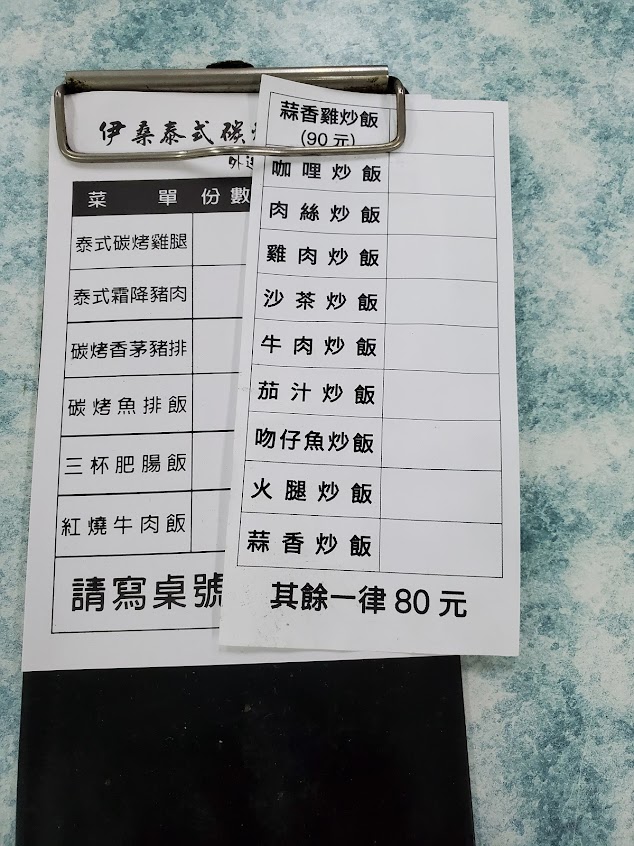 伊桑泰式碳
外
菜單 份數
泰式碳烤雞腿
泰式霜降豬肉
碳烤香茅豬排
碳烤魚排飯
三杯肥腸飯
紅燒牛肉飯
請寫桌號
蒜香雞炒飯
(90元)
咖哩炒飯
肉絲炒飯
雞肉炒飯
沙茶炒飯
牛肉炒飯
茄汁炒飯
吻仔魚炒飯
火腿炒飯
蒜香炒飯
其餘一律80元